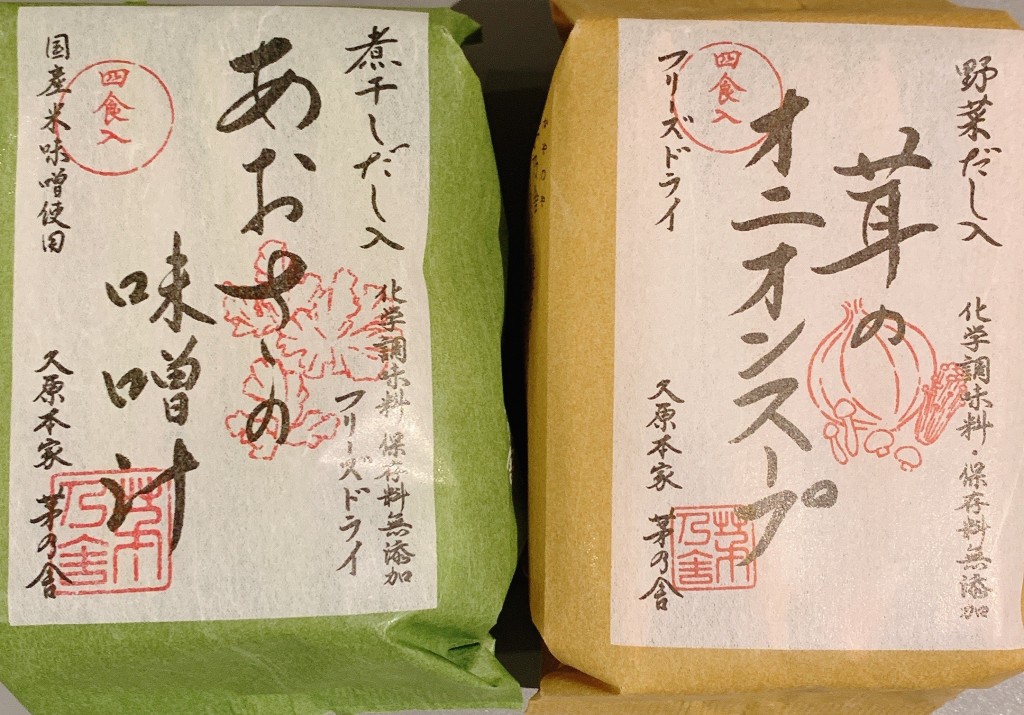 煮干しだし入
化学調味料 保存料無添加
フリーズドライ
あおさの
味噌汁
四食入
国産米味噌使用
久原本家 茅の舎
茅乃舎
野菜だし入
化学調味料・保存料無添加
茸の
オニオンスープ
四食入
フリーズドライ
久原本家 茅乃舎
茅乃舎